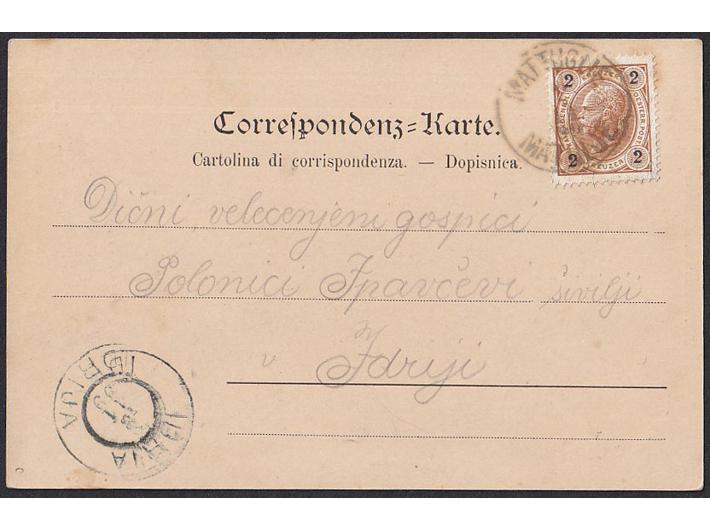 MATTUGLIE
2 2
OESTERR. POST.
2 KREUZER 2
Correspondenz=Karte.
Cartolina di corrispondenza. — Dopisnica.
Dični velecenjeni gospici
Polonici Ipavčevi šivilji
v Idriji
IDRIA
IDRIJA